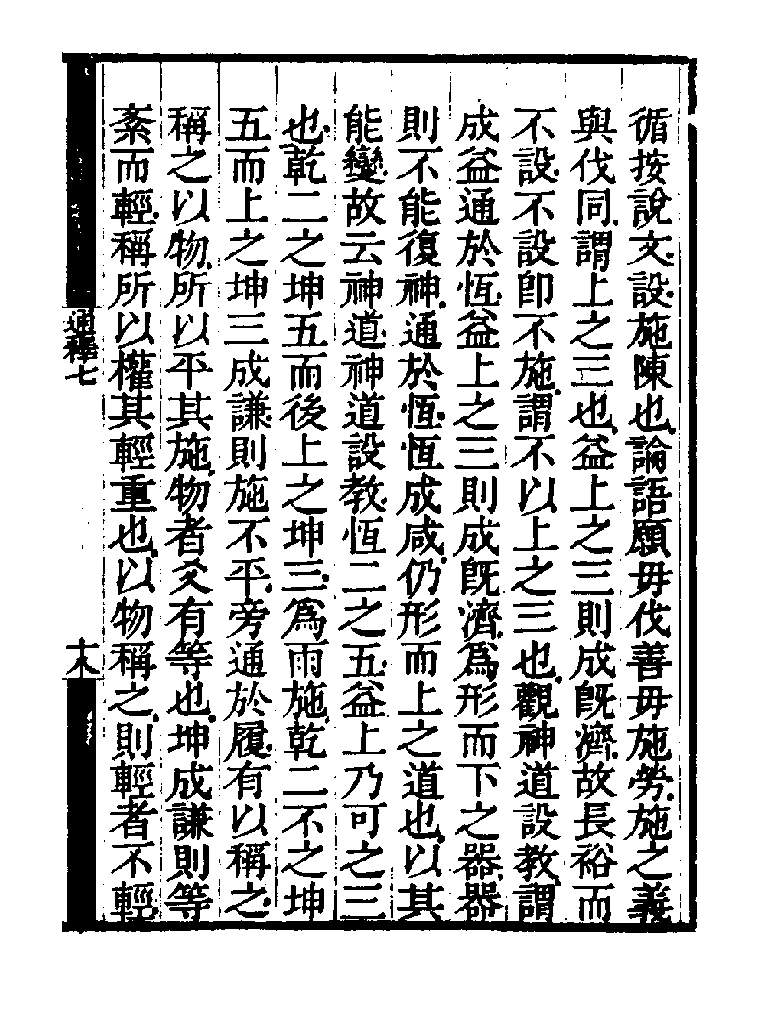 循按說文設施陳也論語願毋伐善毋施勞施之義
與伐同謂上之三也益上之三則成旣濟故長裕而
不設不設卽不施謂不以上之三也觀神道設教謂
成益通於恆益上之三則成旣濟爲形而下之器器
則不能復神通於恆恆成咸仍形而上之道也以其
能變故云神道神道設教恆二之五益上乃可之三
也乾二之坤五而後上之坤三爲雨施乾二不之坤
五而上之坤三成謙則施不平旁通於履有以稱之
稱之以物所以平其施物者爻有等也坤成謙則等
紊而輕稱所以權其輕重也以物稱之則輕者不輕
通釋七
十八